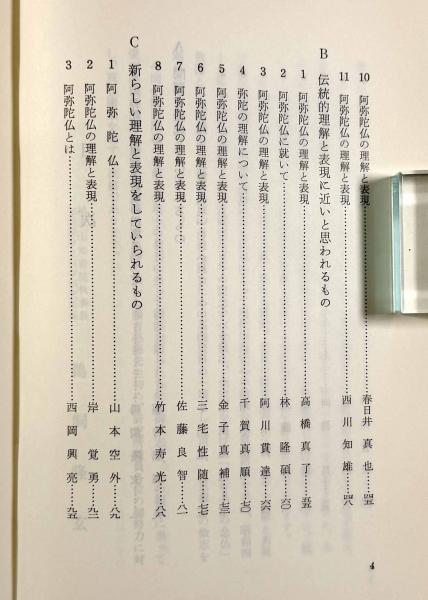 10 阿弥陀仏の理解と表現……………春日井真也…四五
11 阿弥陀仏の理解と表現……………西川知雄…四八
B 伝統的理解と表現に近いと思われるもの
1 阿弥陀仏の理解と表現……………高橋真了…五五
2 阿弥陀仏に就いて……………林隆碩…六〇
3 阿弥陀仏の理解と表現……………阿川貫達…六六
4 弥陀の理解について……………千賀真順…七〇
5 阿弥陀仏の理解と表現……………金子真補…七三
6 阿弥陀仏の理解と表現……………三宅性随…七七
7 阿弥陀仏の理解と表現……………佐藤良智…八一
8 阿弥陀仏の理解と表現……………竹本寿光…八八
C 新らしい理解と表現をしていられるもの
1 阿弥陀仏……………山本空外…八九
2 阿弥陀仏の理解と表現……………岸覚勇…九二
3 阿弥陀仏とは……………西岡興亮…九五
4